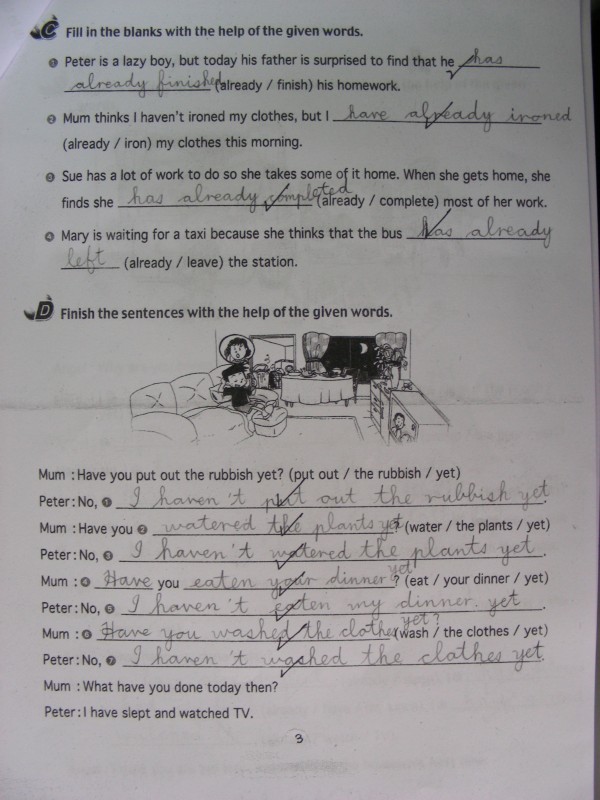 C Fill in the blanks with the help of the given words.
1 Peter is a lazy boy, but today his father is surprised to find that he has
already finished (already / finish) his homework.
2 Mum thinks I haven't ironed my clothes, but I have already ironed
(already / iron) my clothes this morning.
3 Sue has a lot of work to do so she takes some of it home. When she gets home, she
finds she has already completed (already / complete) most of her work.
4 Mary is waiting for a taxi because she thinks that the bus has already
left (already / leave) the station.
D Finish the sentences with the help of the given words.
Mum : Have you put out the rubbish yet? (put out / the rubbish / yet)
Peter : No, 1 I haven't put out the rubbish yet.
Mum : Have you 2 watered the plants yet? (water / the plants / yet)
Peter : No, 3 I haven't watered the plants yet.
Mum : 4 Have you eaten your dinner yet? (eat / your dinner / yet)
Peter : No, 5 I haven't eaten my dinner yet.
Mum : 6 Have you washed the clothes yet? (wash / the clothes / yet)
Peter : No, 7 I haven't washed the clothes yet.
Mum : What have you done today then?
Peter : I have slept and watched TV.
3